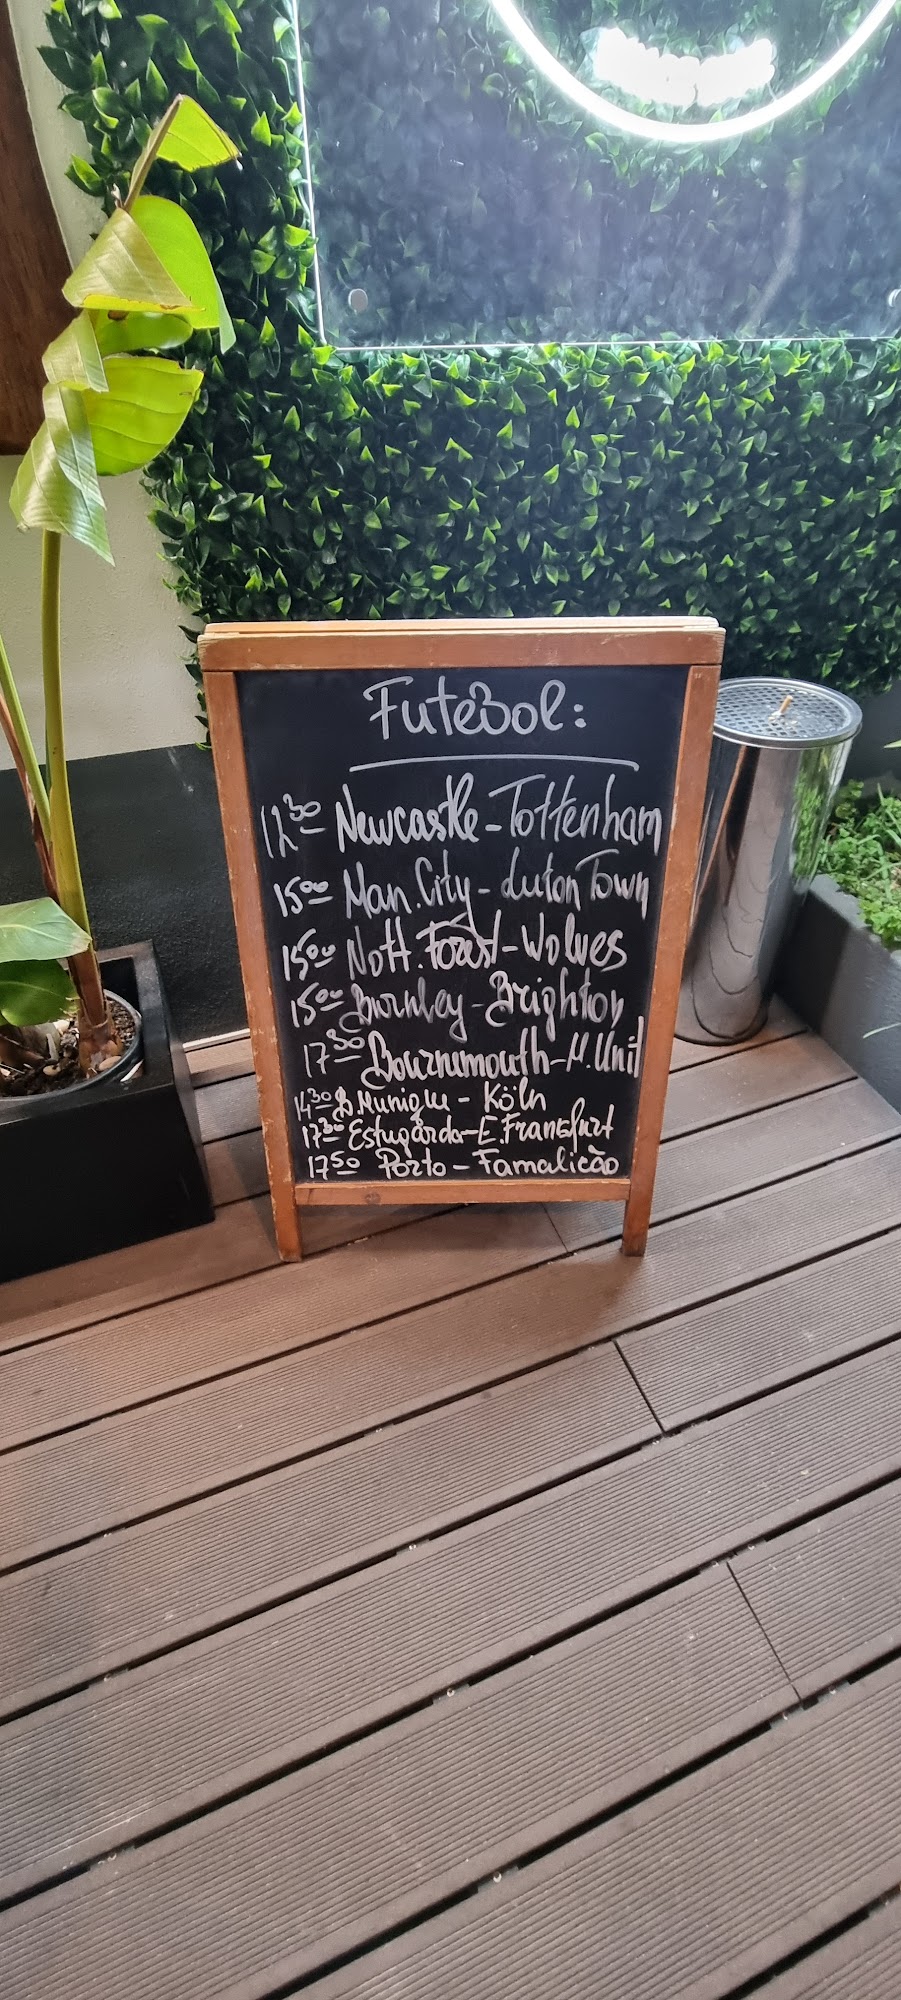 Futebol:
12 30 Newcastle - Tottenham
15 00 Man. City - Luton Town
15 00 Nott. Forest - Wolves
15 00 Burnley - Brighton
17 30 Bournemouth - M. Unit
14 30 B. Munique - Köln
17 30 Estugarda - E. Frankfurt
17 50 Porto - Famalicão